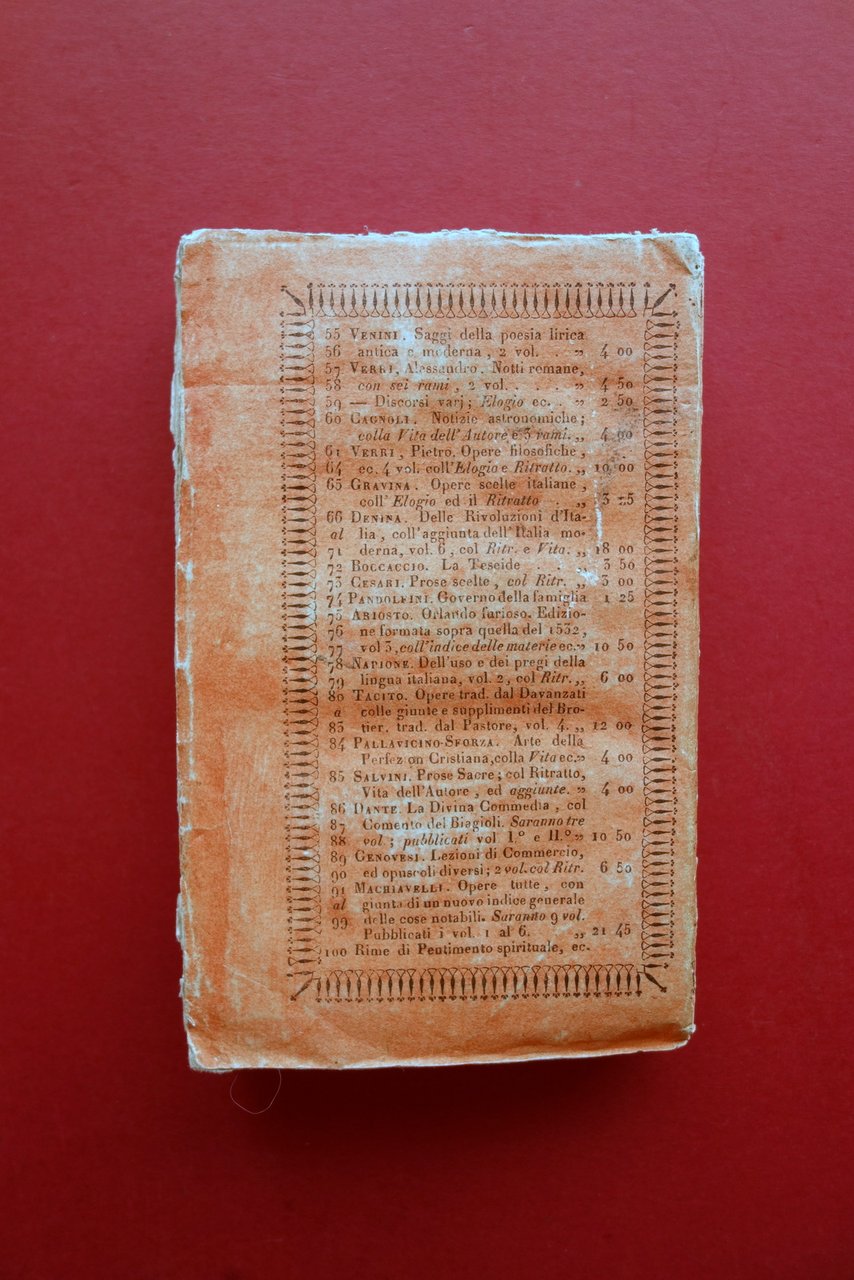 55 VENINI. Saggi della poesia lirica
56 antica e moderna, 2 vol. . „ 4 00
57 VERRI, Alessandro. Notti romane,
58 con sei rami, 2 vol. . . . „ 4 50
59 — Discorsi varj; Elogio ec. . „ 2 50
60 CAGNOLI. Notizie astronomiche;
colla Vita dell'Autore e 3 rami. „ 4 00
61 VERRI, Pietro. Opere filosofiche,
64 ec. 4 vol. coll'Elogio e Ritratto. „ 10 00
65 GRAVINA. Opere scelte italiane,
coll'Elogio ed il Ritratto . „ 3
66 DENINA. Delle Rivoluzioni d'Ita-
al lia, coll'aggiunta dell'Italia mo-
71 derna, vol. 6, col Ritr. e Vita. „ 18 00
72 BOCCACCIO. La Teseide . . „ 3 50
73 CESARI. Prose scelte, col Ritr. „ 3 00
74 PANDOLFINI. Governo della famiglia 1 25
75 ARIOSTO. Orlando furioso. Edizio-
76 ne formata sopra quella del 1532,
77 vol 3, coll'indice delle materie ec. „ 10 50
78 NAPIONE. Dell'uso e dei pregi della
79 lingua italiana, vol. 2, col Ritr. „ 6 00
80 TACITO. Opere trad. dal Davanzati
a colle giunte e supplimenti del Bro-
83 tier, trad. dal Pastore, vol. 4. „ 12 00
84 PALLAVICINO-SFORZA. Arte della
Perfezion Cristiana, colla Vita ec. „ 4 00
85 SALVINI. Prose Sacre; col Ritratto,
Vita dell'Autore, ed aggiunte. „ 4 00
86 DANTE. La Divina Commedia, col
87 Comento del Biagioli. Saranno tre
88 vol; pubblicati vol I.° e II.° „ 10 50
89 GENOVESI. Lezioni di Commercio,
90 ed opuscoli diversi; 2 vol. col Ritr. 6 50
91 MACHIAVELLI. Opere tutte, con
al giunta di un nuovo indice generale
99 delle cose notabili. Saranno 9 vol.
Pubblicati i vol. 1 al 6. „ 21 45
100 Rime di Pentimento spirituale, ec.